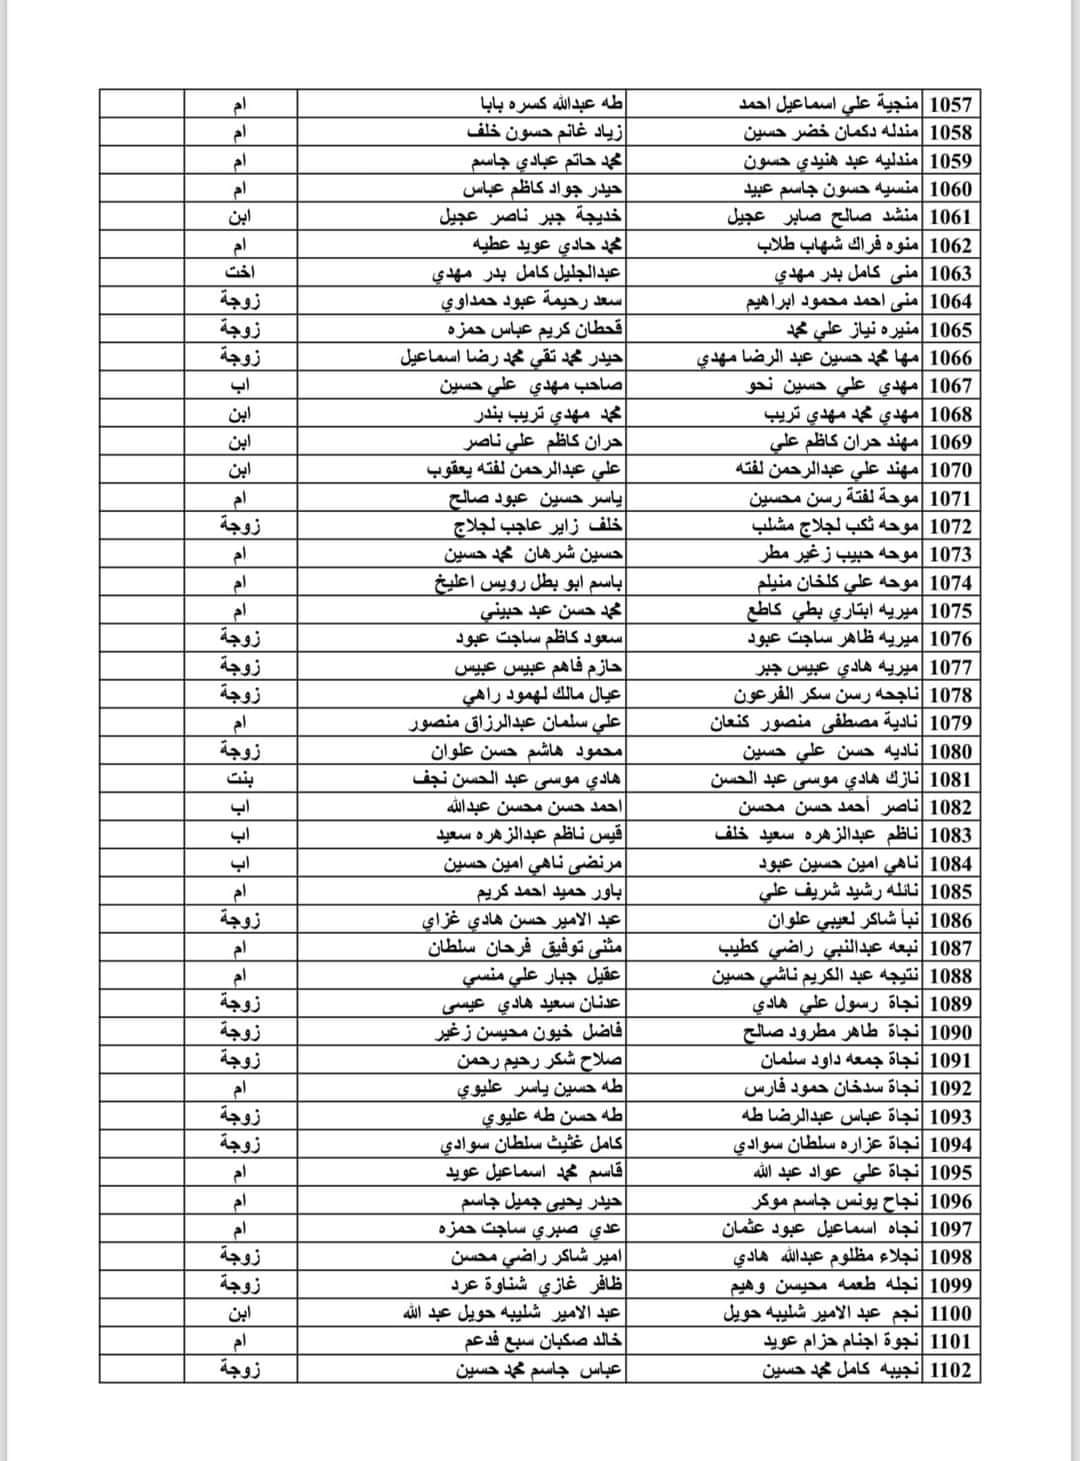 1057 منجية علي اسماعيل احمد طه عبدالله كسره بابا ام
1058 مندله دكمان خضر حسين زياد غانم حسون خلف ام
1059 مندليه عبد هنيدي حسون محمد حاتم عبادي جاسم ام
1060 منسيه حسون جاسم عبيد حيدر جواد كاظم عباس ام
1061 منشد صالح صابر عجيل خديجة جبر ناصر عجيل ابن
1062 منوه فراك شهاب طلاب محمد حادي عويد عطيه ام
1063 منى كامل بدر مهدي عبدالجليل كامل بدر مهدي اخت
1064 منى احمد محمود ابراهيم سعد رحيمة عبود حمداوي زوجة
1065 منيره نياز علي محمد قحطان كريم عباس حمزه زوجة
1066 مها محمد حسين عبد الرضا مهدي حيدر محمد تقي محمد رضا اسماعيل زوجة
1067 مهدي علي حسين نحو صاحب مهدي علي حسين اب
1068 مهدي محمد مهدي تريب محمد مهدي تريب بندر ابن
1069 مهند حران كاظم علي حران كاظم علي ناصر ابن
1070 مهند علي عبدالرحمن لفته علي عبدالرحمن لفته يعقوب ابن
1071 موحة لفتة رسن محسين ياسر حسين عبود صالح ام
1072 موحه ثكب لجلاج مشلب خلف زاير عاجب لجلاج زوجة
1073 موحه حبيب زغير مطر حسين شرهان محمد حسين ام
1074 موحه علي كلخان منيلم باسم ابو بطل رويس اعليخ ام
1075 ميريه ابتاري بطي كاطع محمد حسن عبد حبيني ام
1076 ميريه ظاهر ساجت عبود سعود كاظم ساجت عبود زوجة
1077 ميريه هادي عبيس جبر حازم فاهم عبيس عبيس زوجة
1078 ناجحه رسن سكر الفرعون عيال مالك لهمود راهي زوجة
1079 نادية مصطفى منصور كنعان علي سلمان عبدالرزاق منصور ام
1080 ناديه حسن علي حسين محمود هاشم حسن علوان زوجة
1081 نازك هادي موسى عبد الحسن هادي موسى عبد الحسن نجف بنت
1082 ناصر أحمد حسن محسن احمد حسن محسن عبدالله اب
1083 ناظم عبدالزهره سعيد خلف قيس ناظم عبدالزهره سعيد اب
1084 ناهي امين حسين عبود مرتضى ناهي امين حسين اب
1085 نائله رشيد شريف علي ياور حميد احمد كريم ام
1086 نبأ شاكر لعيبي علوان عبد الامير حسن هادي غزاي زوجة
1087 نبعه عبدالنبي راضي كطيب مثنى توفيق فرحان سلطان ام
1088 نتيجه عبد الكريم ناشي حسين عقيل جبار علي منسي ام
1089 نجاة رسول علي هادي عدنان سعيد هادي عيسى زوجة
1090 نجاة طاهر مطرود صالح فاضل خيون محيسن زغير زوجة
1091 نجاة جمعه داود سلمان صلاح شكر رحيم رحمن زوجة
1092 نجاة سدخان حمود فارس طه حسين ياسر عليوي ام
1093 نجاة عباس عبدالرضا طه طه حسن طه عليوي زوجة
1094 نجاة عزاره سلطان سوادي كامل غثيث سلطان سوادي زوجة
1095 نجاة علي عواد عبد الله قاسم محمد اسماعيل عويد ام
1096 نجاح يونس جاسم موكر حيدر يحيى جميل جاسم ام
1097 نجاه اسماعيل عبود عثمان عدي صبري ساجت حمزه ام
1098 نجلاء مظلوم عبدالله هادي امير شاكر راضي محسن زوجة
1099 نجله طعمه محيسن وهيم ظافر غازي شناوة عرد زوجة
1100 نجم عبد الامير شليبه حويل عبد الامير شليبه حويل عبد الله ابن
1101 نجوة اجنام حزام عويد خالد صكبان سبع فدعم ام
1102 نجيبه كامل محمد حسين عباس جاسم محمد حسين زوجة